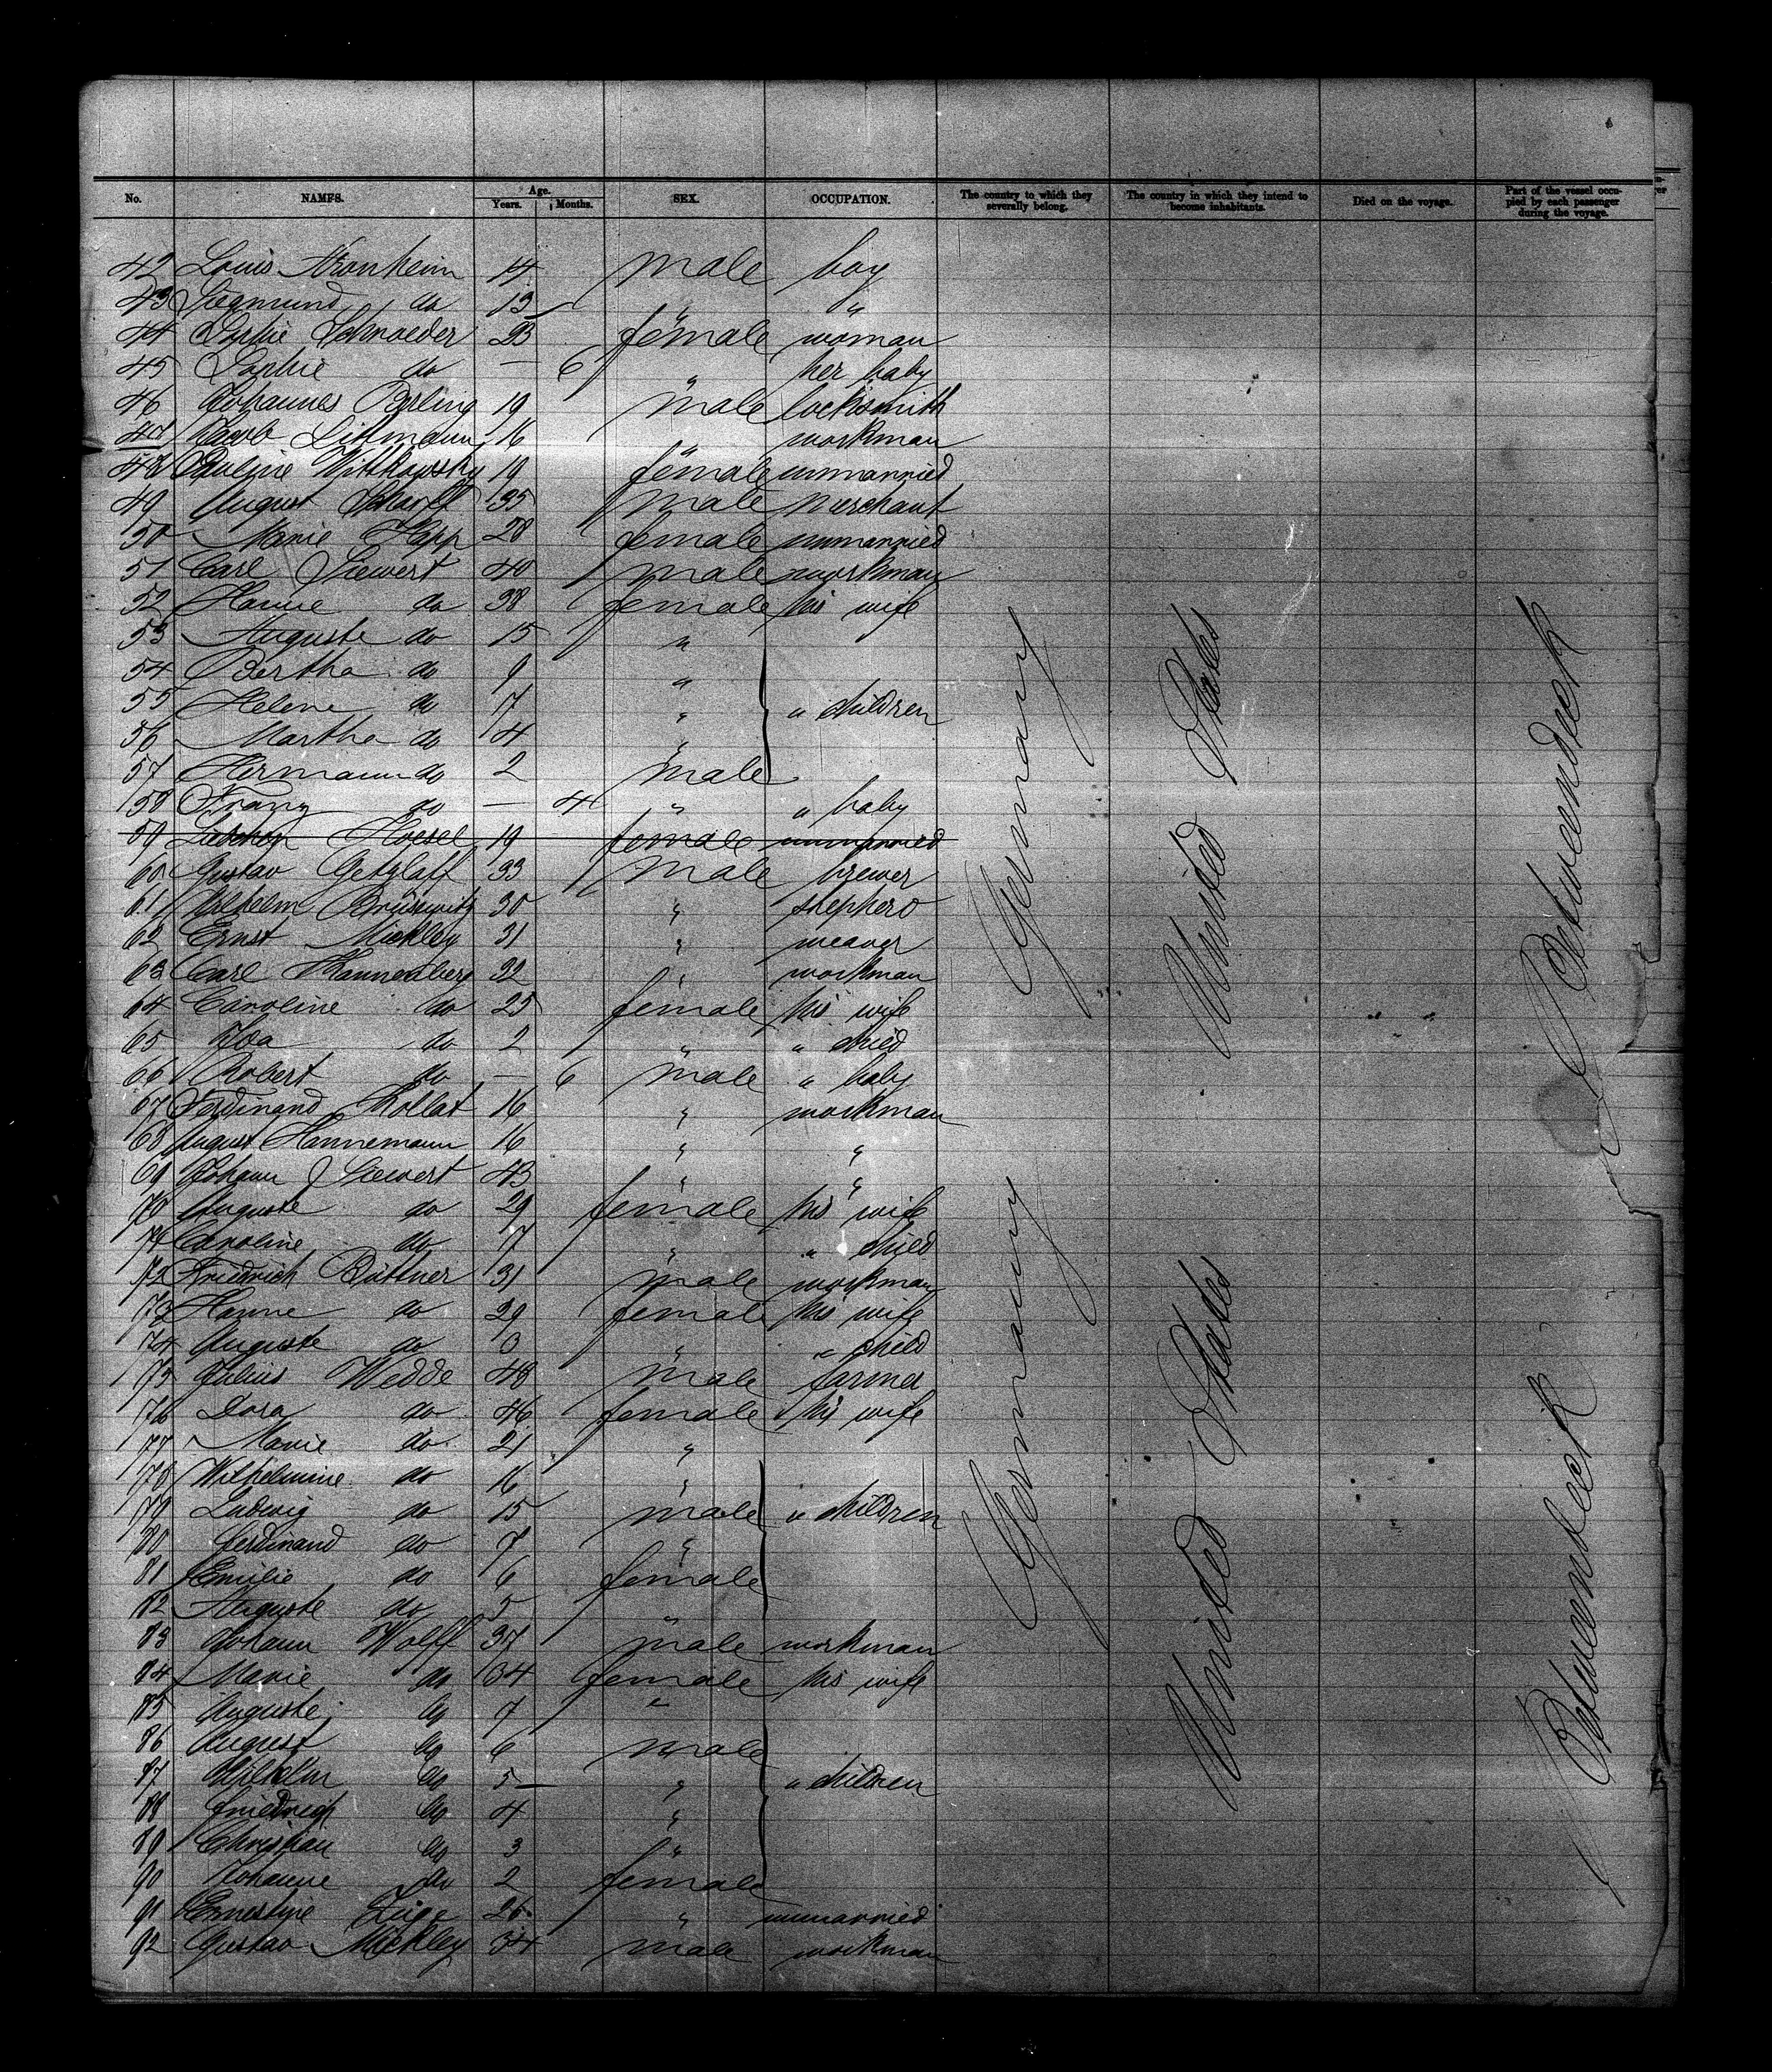 No. NAMES. Age. Years. Months. SEX. OCCUPATION. The country to which they severally belong. The country in which they intend to become inhabitants. Died on the voyage. Part of the vessel occupied by each passenger during the voyage.
42 Louis Kronheim 14 male boy
43 Siegmund do 13 " "
44 Sophie Schroeder 23 female woman
45 Sophie do — 6 " her baby
46 Johannes Berling 19 male locksmith
47 Jacob Littmann 16 " workman
48 Pauline Witkowsky 19 female unmarried
49 August Scharff 35 male merchant
50 Marie Happ 28 female unmarried
51 Carl Siewert 40 male workman
52 Hanne do 38 female his wife
53 Auguste do 15 "
54 Bertha do 9 "
55 Helene do 7 " " children
56 Martha do 4 "
57 Hermann do 2 male
58 Franz do — 4 " " baby
59 Hoesel 19 female unmarried
60 Gustav Getzlaff 33 male brewer
61 Wilhelm Brüsewitz 30 " shepherd
62 Ernst Mickley 31 " weaver
63 Carl Kannenberg 32 " workman
64 Caroline do 25 female his wife
65 Ida do 2 " " child
66 Robert do — 6 male " baby
67 Ferdinand Kollat 16 " workman
68 August Hannemann 16 " "
69 Johann Siewert 43 " "
70 Auguste do 29 female his wife
71 Caroline do 7 " " child
72 Friedrich Büttner 31 male workman
73 Hanne do 29 female his wife
74 Auguste do " " child
75 Julius Wedde 48 male farmer
76 Dora do 46 female his wife
77 Marie do 21 "
78 Wilhelmine do 16 "
79 Ludwig do 15 male " children
80 Ferdinand do 7 "
81 Emilie do 6 female
82 Auguste do 5 "
83 Johann Wolff 37 male workman
84 Marie do 34 female his wife
85 Auguste do 7 "
86 August do 6 male
87 Wilhelm do 5 " " children
88 Friedrich do 4 "
89 Christian do 3 "
90 Johanne do 2 female
91 Ernestine 26 " unmarried
92 Gustav Mickley 34 male workman
Germany
United States
Betweendeck
Germany
United States
Betweendeck